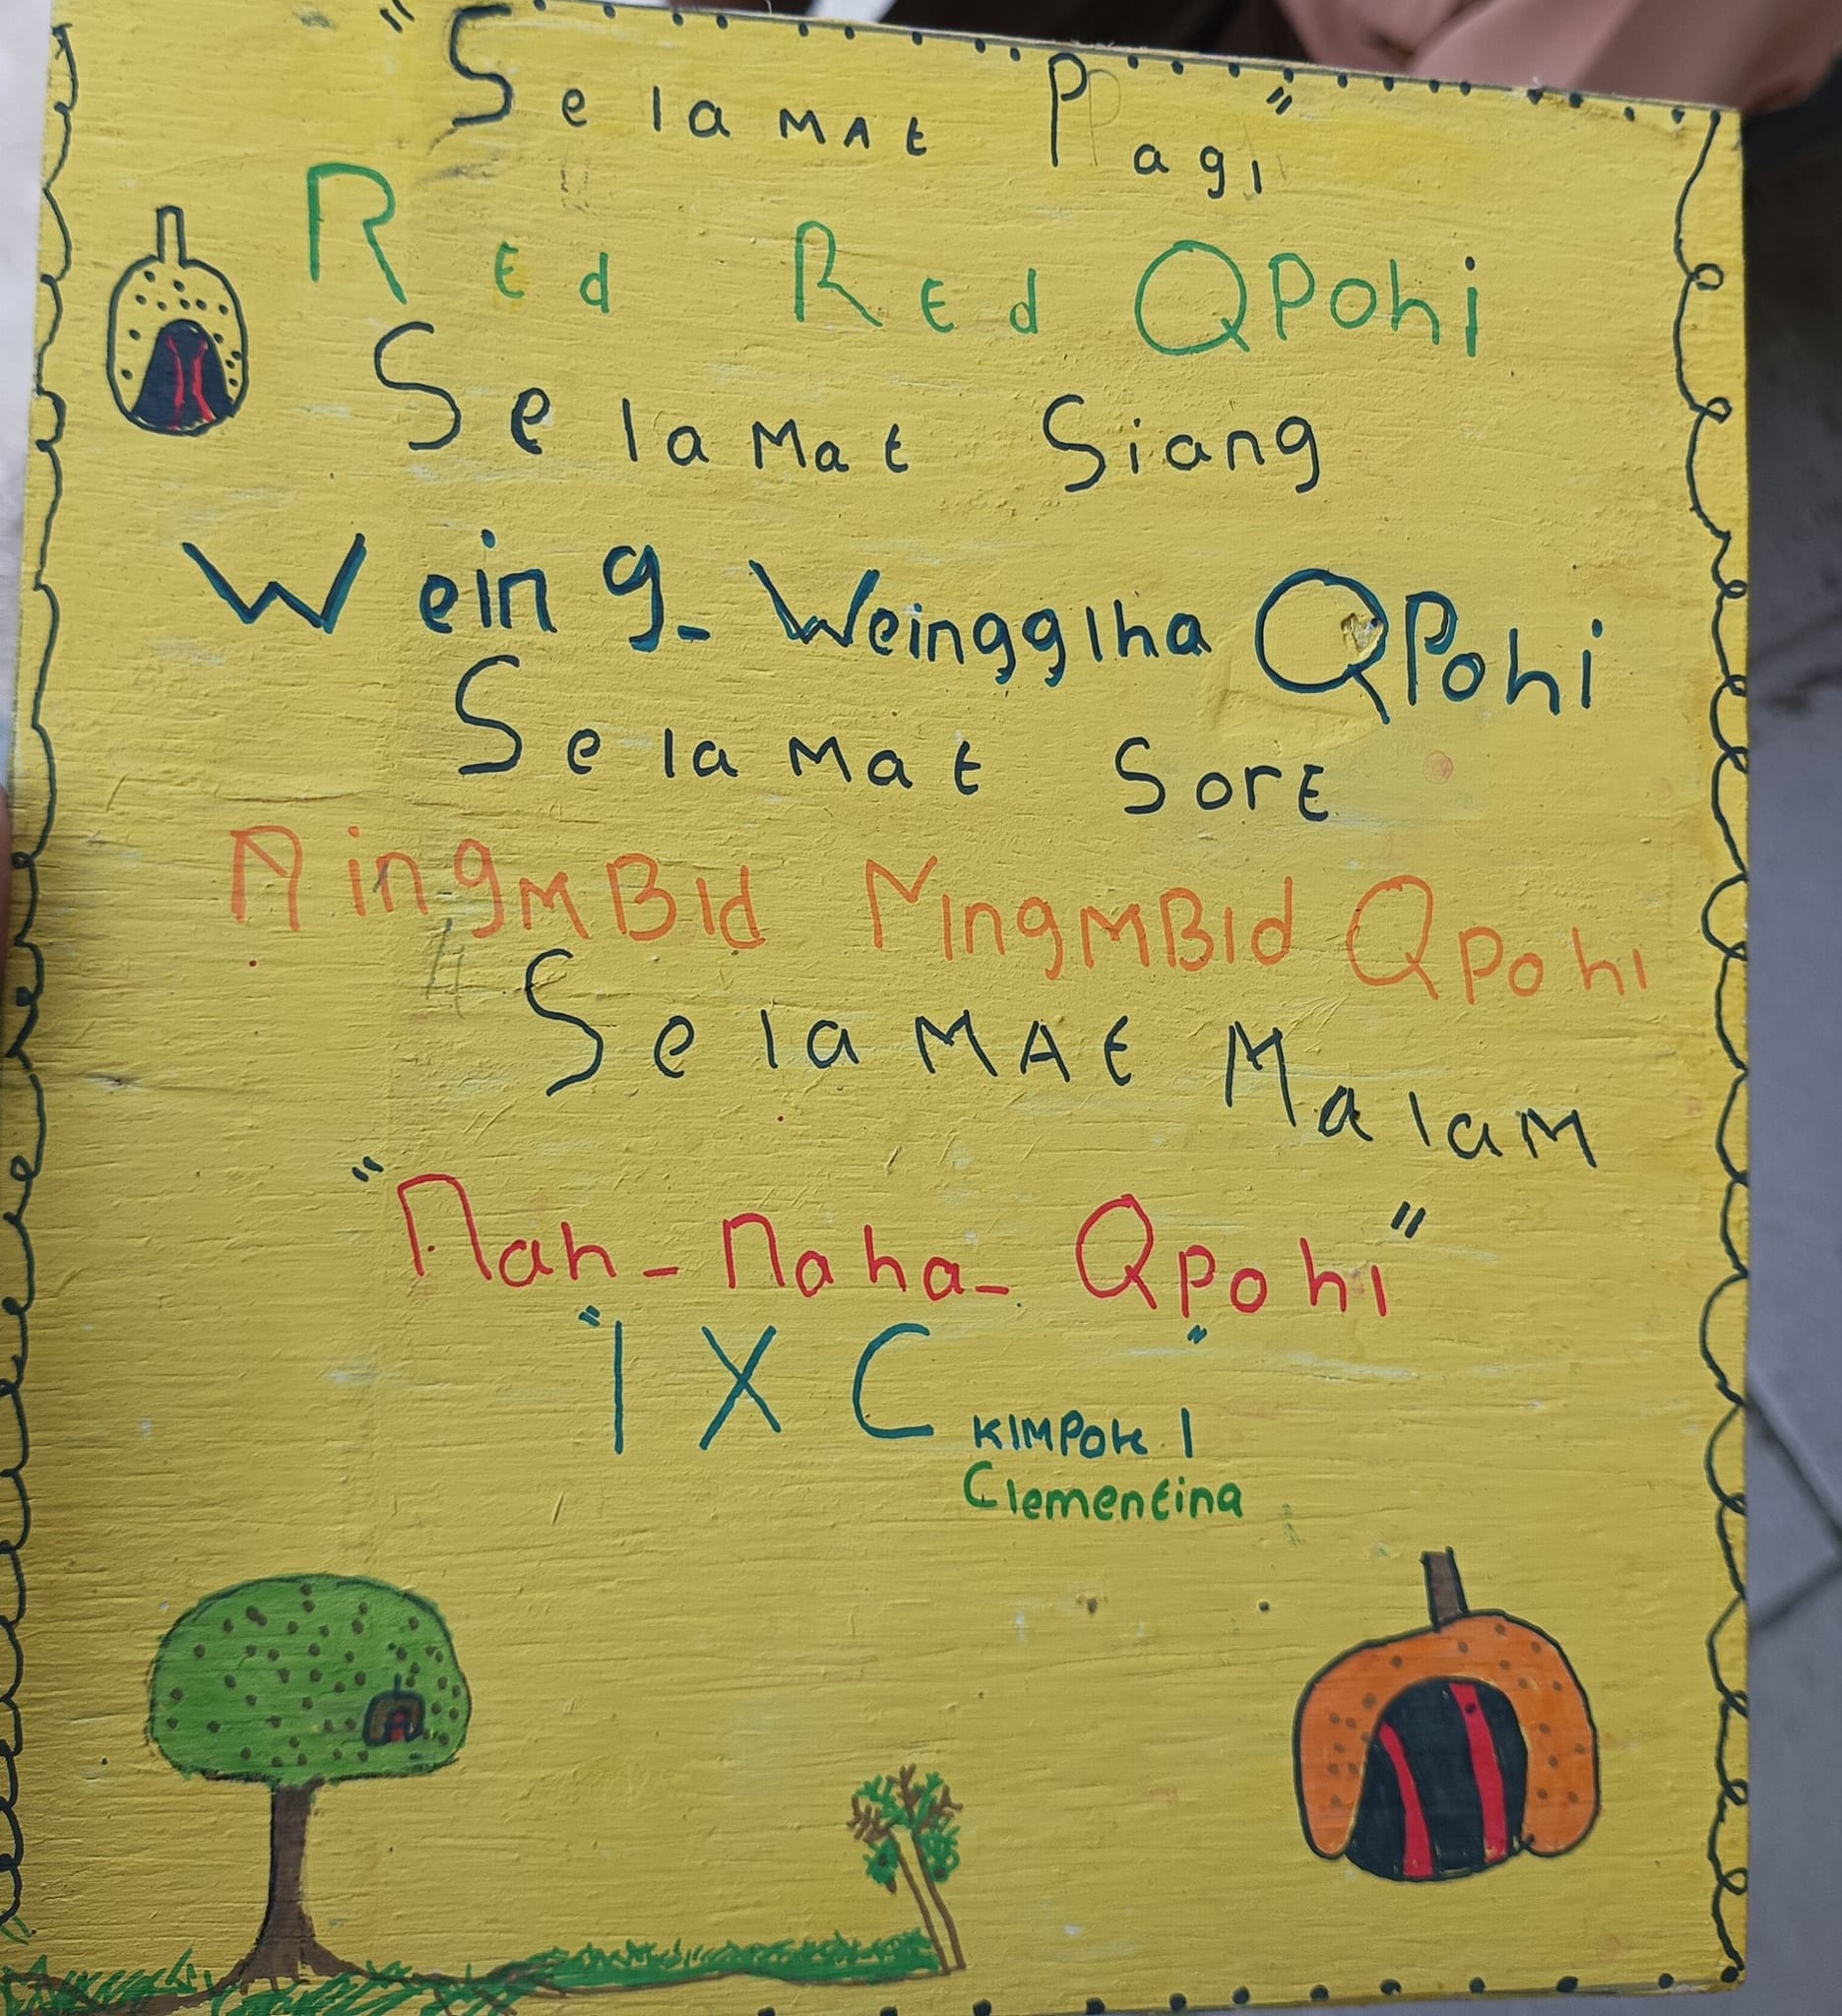 "Selamat Pagi"
Red Red Qpohi
Selamat Siang
Weing-Weingglha Qpohi
Selamat Sore
NingmBid NingmBid Qpohi
Selamat Malam
"Nah-naha-Qpohi"
"IX C"
KIMPOK 1
Clementina